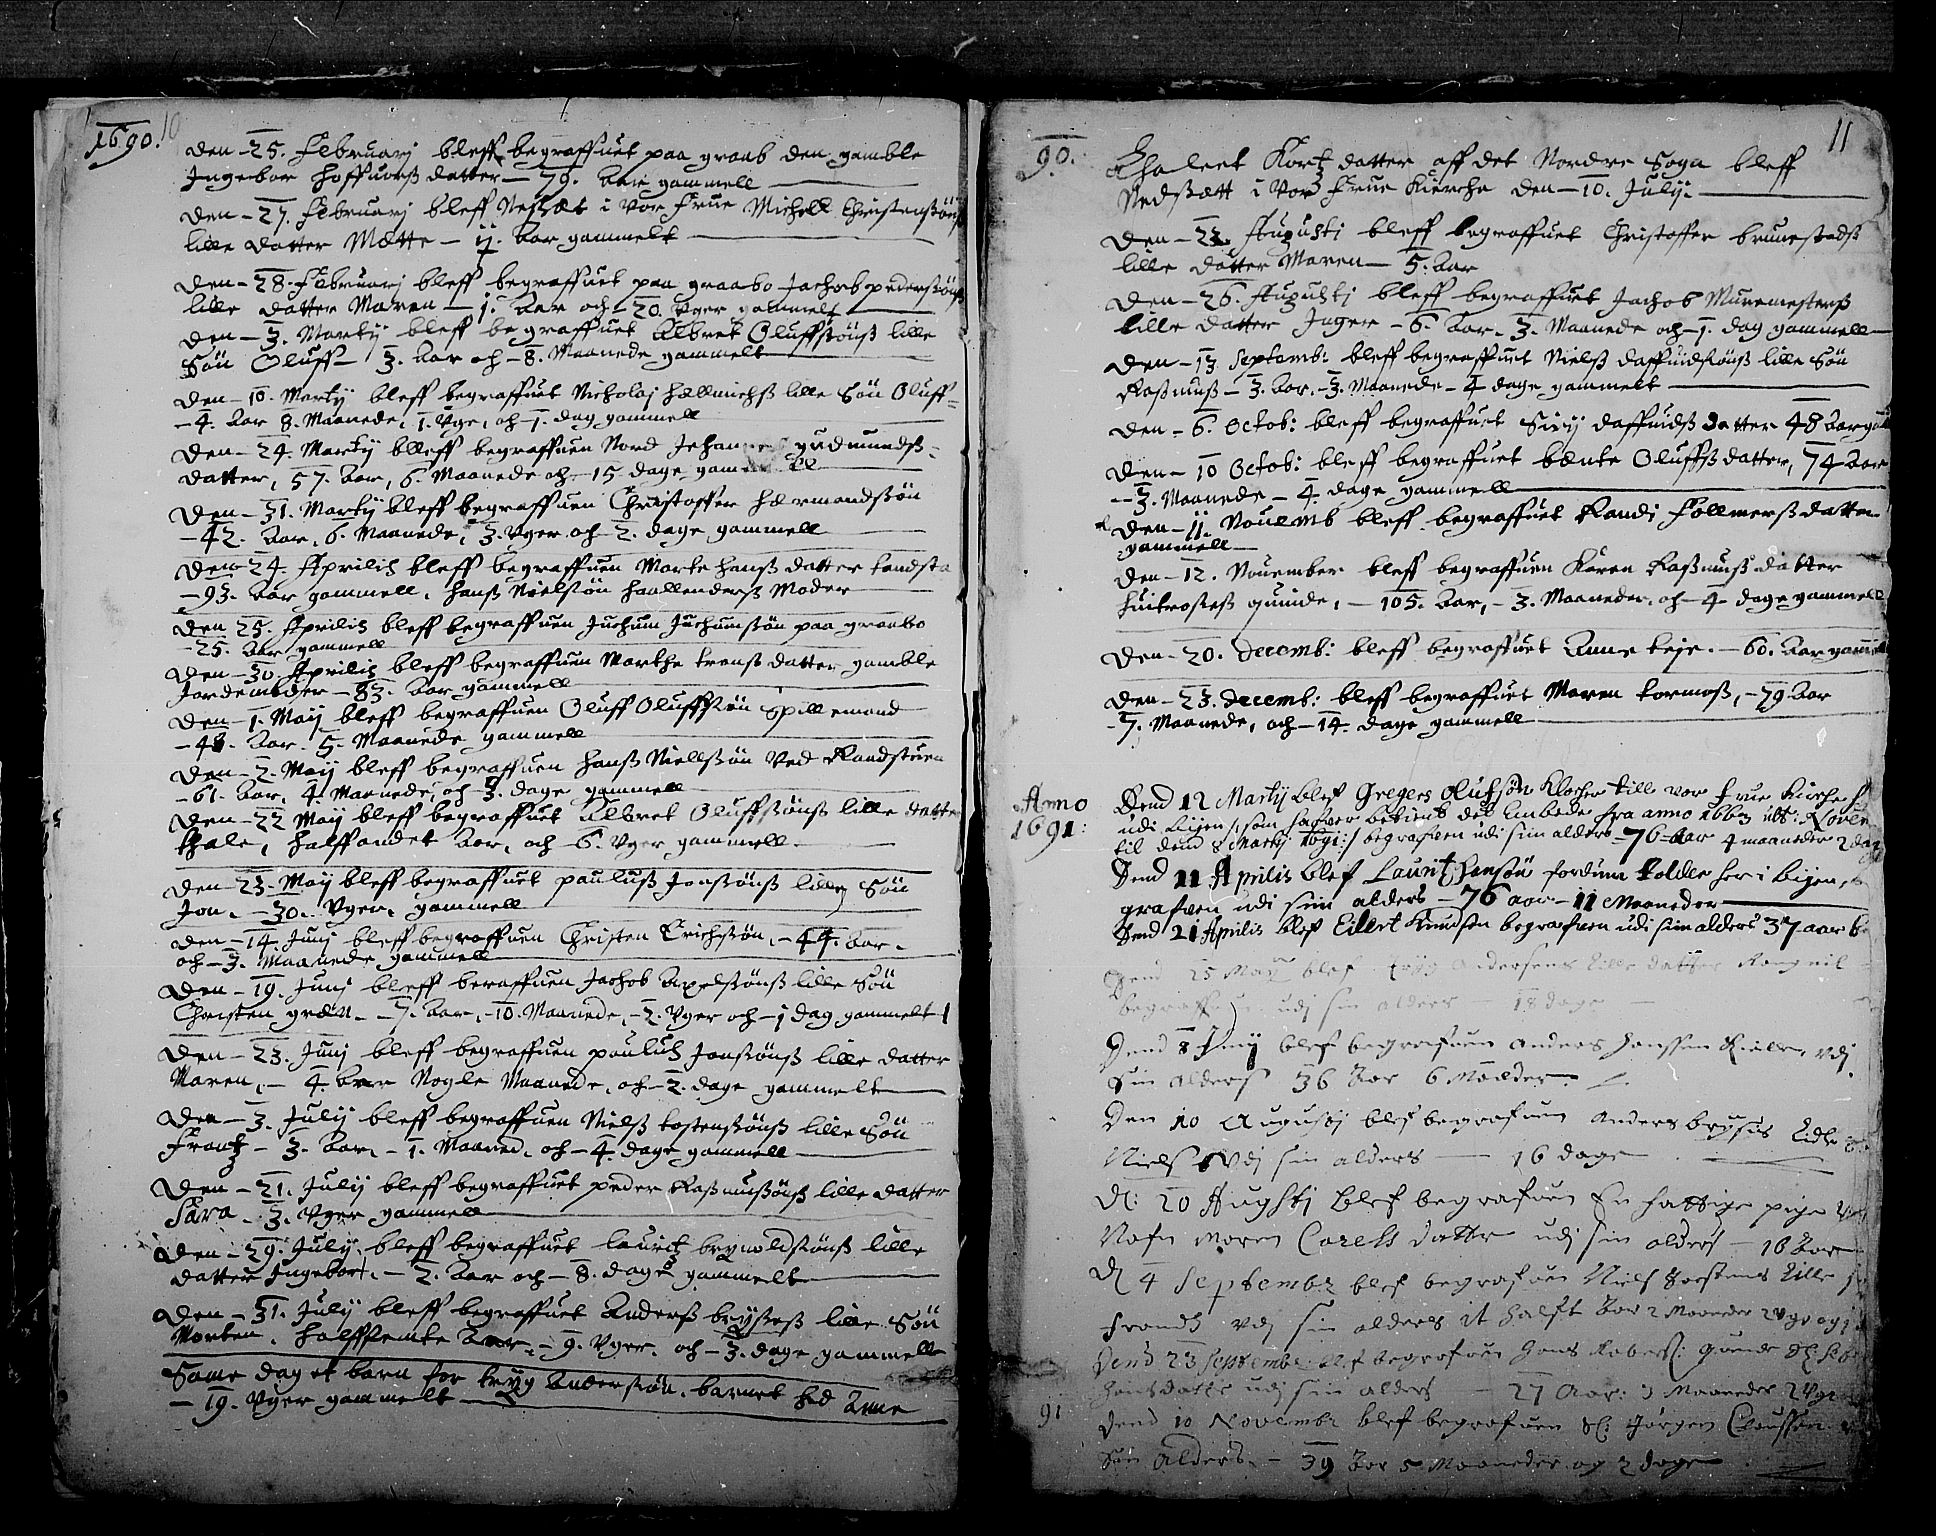 1690. 10
Den - 25. Februarj bleff begraffuet paa graab den gamble
Ingebor Hoffuorß datter - 79. Aar gammell
Den - 27. Februarj bleff Nedsæt i Vor Frue Michell Christenßön
lille datter Mætte - 11. Aar gammelt
Den - 28. Februarj bleff begraffuet paa graabo Jachob pederßönß
lille datter Maren - 1. Aar och - 20. Vger gammelt
Den - 3. Martij bleff begraffuet Albret Oluffßönß lille
Sön Oluff - 3. Aar och - 8. Maanede gammelt
Den - 10. Martij bleff begraffuet Nicholaj Hællmichß lille Sön Oluff
- 4. Aar 8. Maanede, 1. Vge, och - 1. dag gammell
Den - 24. Martij bleff begraffuen Nord gudmundß
datter, 57. Aar, 6. Maanede och - 15 dage
Den - 31. Martij bleff begraffuen Christoffer Hermandßön
- 42. Aar, 6. Maanede, 3. Vger och - 2. dage gammell
Den - 24. Aprilis bleff begraffuen Marte Hanß datter
- 93. Aar gammell, Hanß Nielßön Haallenderß Moder
Den 25. Aprilis bleff begraffuen Juchum Juchumßön paa graabo
- 25. Aar gammell
Den - 30. Aprilis bleff begraffuen Marthe trenß datter gamble
Jordemoder - 83. Aar gammell
Den - 1. Maij bleff begraffuen Oluff Oluffßön Spillemand
- 48. Aar. 5. Maanede gammell
Den - 2. Maij bleff begraffuen Hanß Niellßön Ved Randstuen
- 61. Aar, 4. Maanede, och - 3. dage gammell
Den - 22 Maij bleff begraffuet Albret Oluffßönß lille datter
thale, halffandet Aar, och - 6. Vger gammell
Den - 23. Maij bleff begraffuet paulluß Jonßönß lille Sön
Jon. - 30. Vger. gammell
Den - 14. Junj bleff begraffuen Christen Erichßön. - 44. Aar.
och - 3. Maanede gammell
Den - 19. Junj bleff beraffuen Jachob Axelßönß lille Sön
Christen græn. - 7. Aar, - 10. Maanede, - 2. Vger och - 1 dag gammelt
Den - 23. Junj bleff begraffuen paulus Jonßönß lille datter
Maren, - 4. Aar Nogle Maanede, och - 2. dage gammelt
Den - 3. Julij bleff begraffuen Nielß tostenßönß lille Sön
Frantz - 3. Aar, - 1. Maaned. och - 4. dage gammell
Den - 21. Julij bleff begraffuet peder Raßmußönß lille datter
Sara - 3. Vger gammell
Den - 29. Julij bleff begraffuet lauritz brynoldßönß lille
datter Ingebor. - 2. Aar och - 8. dage gammelt
Den - 31. Julij bleff begraffuet Anderß brÿßeß lille Sön
Morten. halffemte Aar. - 9. Vger. och - 3. dage gammelt
Same dag et barn for tryg Anderßön. barnet hed Anne
- 19. Vger gammelt
11
90.
Kortz datter aff det Nordre Sogn bleff
Nedßætt i Vor Frue Kierche den - 10. Julij.
Den - 22. Augustj bleff begraffuet Christoffer brunestadß
lille datter Maren - 5. Aar
Den - 26. Augustj bleff begraffuet Jachob Murmesterß
lille datter Inger - 6. Aar. 3. Maanede och - 1. dag gammell
Den - 13. Septemb: bleff begraffuet Nielß daffuidßönß lille Sön
Raßmuß - 3. Aar. - 3. Maanede - 4 dage gammelt
Den - 6. Octob: bleff begraffuet Sirij daffuidß datter 48 Aar
Den - 10 Octob: bleff begraffuet bænte Oluffß datter, 74 Aar
- 3. Maanede - 4. dage gammell
Den - 11. Nouemb bleff begraffuet Randi Follmerß datter
gammell
Den - 12. Nouember bleff begraffuen Karen Raßmuß datter
Huitfosteß quinde, - 105. Aar, - 3. Maaneder. och - 4 dage gammell
Den - 20. Decemb: bleff begraffuet Anne teje. - 60. Aar gammell
Den - 23. Decemb: bleff begraffuet Maren tormoß, - 79. Aar
- 7. Maanede, och - 14. dage gammell
Anno
1691:
Dend 12 Martij blef Gregers Olufsön Klocher till vor Frue Kirche
udi Bijen, som hafver betient det Embede fra anno 1663
til dend 8 Martij 1691 begrafven udi sin alders - 76 - Aar 4 maaneder 2 dag
Dend 11 Aprilis blef Lauritz Hansön fordum tolder her i Bijen,
grafven udi sin alders - 76 aar - 11 Maaneder
Dend 21 Aprilis blef Eilert Knudsen begrafven udi sin alders 37 aar
Dend 25 Maij blef tryg Andersens lille datter
udj sin alders - 18 dage
Dend 8 Junij blef begrafuen Anders Hanssen vdj
Sin alders 36 Aar 6
Den 10 Augustj blef begrafuen Anders brÿses
Niels vdj sin alders - 16 dage
D: 20 Augustj blef begrafuen En fattige pige
Nafn Maren datter udj sin alders - 16 Aar
D 4 Septembr blef begrafuen Niels lille
Frandtz vdj sin alders halft Aar 2 Maaneder
Dend 23 Septembr blef begrafuen Hans
Hansdatter udj sin alders - 27 Aar: Maaneder
91
Dend 10 Novembr blef begrafuen Jörgen Claussön
Sin Alders. - 39 Aar 5 Maaneder og 2 dage